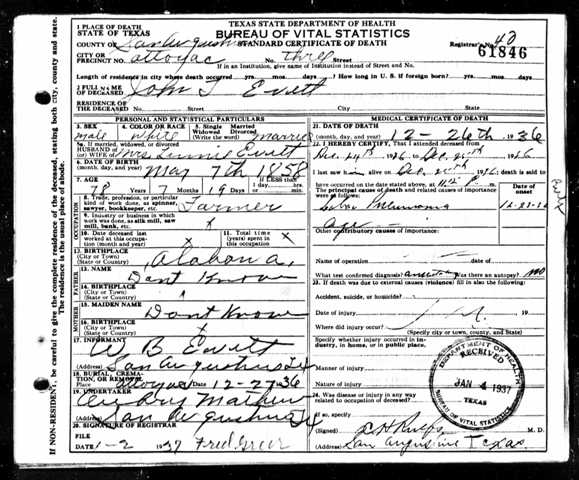 TEXAS STATE DEPARTMENT OF HEALTH
BUREAU OF VITAL STATISTICS
STANDARD CERTIFICATE OF DEATH
1. PLACE OF DEATH
STATE OF TEXAS
COUNTY OF San Augustine
PRECINCT NO. attoyac No. three Street
Registrar's No. 40
61846
If in an Institution, give name of Institution instead of Street and No.
Length of residence in city where death occurred yrs. mos. days. How long in U. S. if foreign born? yrs. mos. days.
2. FULL NAME OF DECEASED John T Evett
RESIDENCE OF THE DECEASED Street No. City State
PERSONAL AND STATISTICAL PARTICULARS
3. SEX male
4. COLOR OR RACE white
5. Single Married Widowed Divorced (Write the word) married
5a. If married, widowed or divorced
HUSBAND OF (or) WIFE OF Mrs Evett
6. DATE OF BIRTH (month, day, year) May 7th 1858
7. AGE 78 7 Months 19 Days If LESS than 1 day
OCCUPATION
8. Trade, profession, or particular kind of work done, as spinner, sawyer, bookkeeper, etc. Farmer
9. Industry or business in which work was done, as silk mill, saw mill, bank, etc.
10. Date deceased last worked at this occupation
11. Total time (years) spent in this occupation x
12. BIRTHPLACE (City or Town) (State or Country) Alabama
FATHER
13. NAME Dont Know
14. BIRTHPLACE (City or Town) (State or Country)
MOTHER
15. MAIDEN NAME Dont Know
16. BIRTHPLACE (City or Town) (State or Country)
17. INFORMANT W B Evett
(Address) San Augustine Tx
18. BURIAL, CREMATION, OR REMOVAL attoyac Date 12-27-36
19. UNDERTAKER
(Address) San Augustine
20. SIGNATURE OF REGISTRAR
FILE DATE 1-2 1937 Fred Greer
MEDICAL CERTIFICATE OF DEATH
21. DATE OF DEATH (month, day, year) 12-26th, 1936
22. I HEREBY CERTIFY, That I attended deceased from
Dec. 24th 1936 to Dec. 1936
I last saw him alive on Dec. 1936; death is said to have occurred on the date stated above, at
The principal cause of death and related causes of importance were as follows:
Date of onset
Lobar Pneumonia
Age
Other contributory causes of importance:
Name of operation
What test confirmed diagnosis? Was there an autopsy? no
23. If death was due to external causes (violence) fill in also the following:
Accident, suicide, or homicide?
Date of injury 19
Where did injury occur?
(Specify city or town, county, and State)
Specify whether injury occurred in industry, in home, or in public place.
Manner of injury
Nature of injury
24. Was disease or injury in any way related to occupation of deceased?
If so, specify
(Signed) M. D.
(Address) San Augustine Texas.
DEPARTMENT OF HEALTH
RECEIVED
JAN 4 1937
TEXAS
BUREAU OF VITAL STATISTICS
If NON-RESIDENT, be careful to give the complete residence of the deceased, stating both city, county and state. The residence is the usual place of abode.